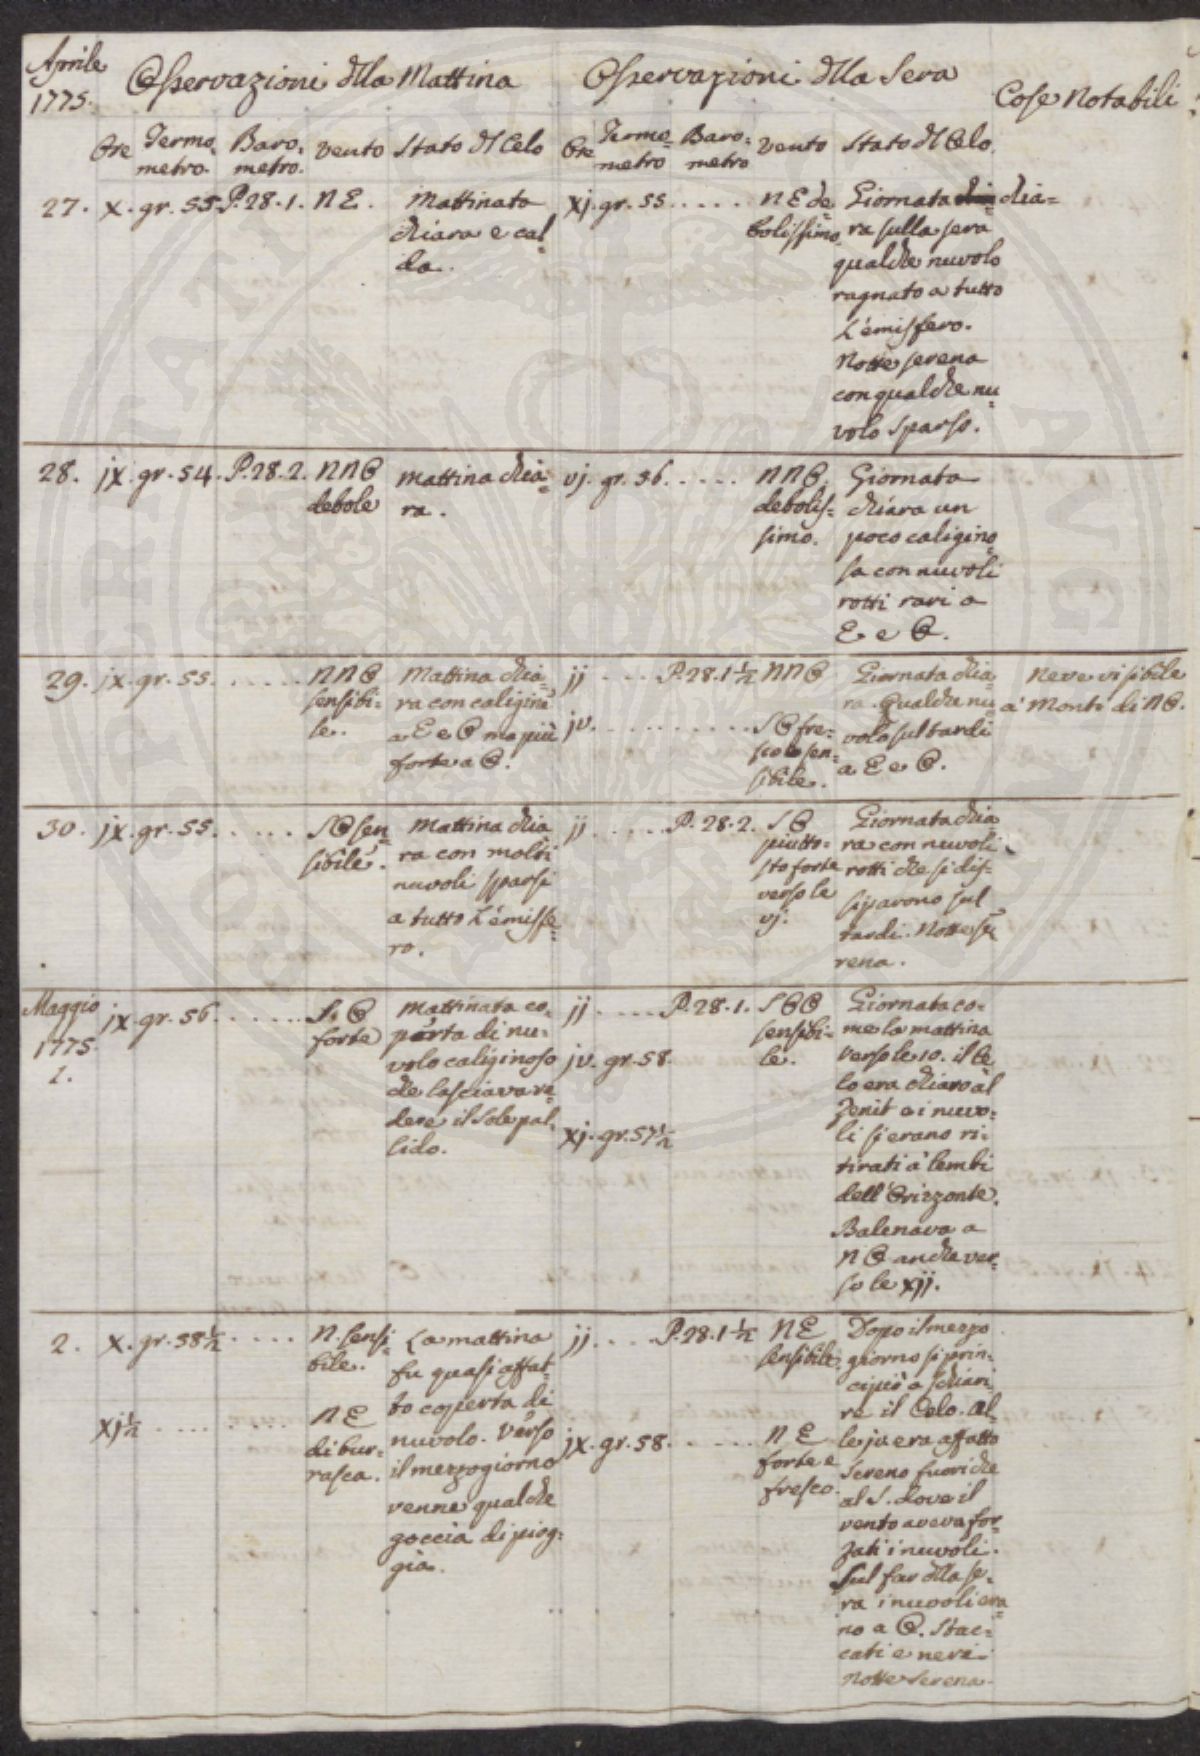 Aprile
1775.
Osservazioni dlla Mattina
Osservazioni dlla Sera
Cose Notabili
Ore Termo=metro. Baro=metro. Vento Stato dl Celo
Ore Termo=metro Baro=metro Vento Stato dl Celo.
27. x. gr. 55. P. 28. 1. NE.
Mattinata
chiara e cal=
da.
xj. gr. 55 . . . . .
NE de
bolissimo.
Giornata chia=
ra sulla sera
qualche nuvolo
ragnato a tutto
L'emisfero.
Notte serena
con qualche nu=
volo sparso.
28. jx. gr. 54. P. 28. 2. NNO
debole
mattina chia=
ra.
vj. gr. 56. . . . .
NNO.
debolis=
simo.
Giornata
chiara un
poco caligino=
sa con nuvoli
rotti rari a
E e O.
29. jx. gr. 55. . . . . .
NNO
sensibi=
le.
Mattina chia=
ra con caligine
a E e O ma più
forte a O.
jj . . . P. 28. 1 1/2 NNO
jv. . . . . . . . . .
SO fre=
sco sen=
sibile.
Giornata chia=
ra. Qualche nu=
volo sul tardi
a E e O.
Neve visibile
a' Monti di NO.
30. jx. gr. 55. . . . . .
SO sen=
sibile.
Mattina chia
ra con molti
nuvoli sparsi
a tutto L'emisfe=
ro.
jj. . . . . P. 28. 2. SO
piutto=
sto forte
verso le
vj.
Giornata chia
ra con nuvoli
rotti che si dis=
siparono sul
tardi. Notte se
rena.
Maggio
1775.
1.
jx. gr. 56. . . . . . .
S. O
forte
Mattinata co=
perta di nu=
volo caliginoso
che lasciava ve=
dere il Sole pal=
lido.
jj. . . . . P. 28. 1. SOO
sensibi=
le.
jv. gr. 58.
xj. gr. 57 1/2
Giornata co=
me la mattina
verso le 10. il Ce
lo era chiaro al
Zenit e i nuvo=
li si erano ri=
tirati a' lembi
dell'Orizzonte.
Balenava a
NO anche ver=
so le xjj.
2. x. gr. 58 1/2 . . . .
N. sensi=
bile.
xj 1/2 . . . . . . . .
NE
di bur=
rasca.
La mattina
fu quasi affat=
to coperta di
nuvolo. Verso
il mezzogiorno
venne qualche
goccia di piog=
gia.
jj. . . . P. 28. 1 1/2 NE
sensibile.
jx. gr. 58. . . . . .
NE
forte e
fresco.
Dopo il mezzo
giorno si prin=
cipiò a schiari=
re il Celo. Al=
le ja era affatto
Sereno fuori che
al S. dove il
vento aveva for=
zati i nuvoli.
Sul far dlla se=
ra i nuvoli era=
no a O. Stac=
cati e neri.
Notte Serena.